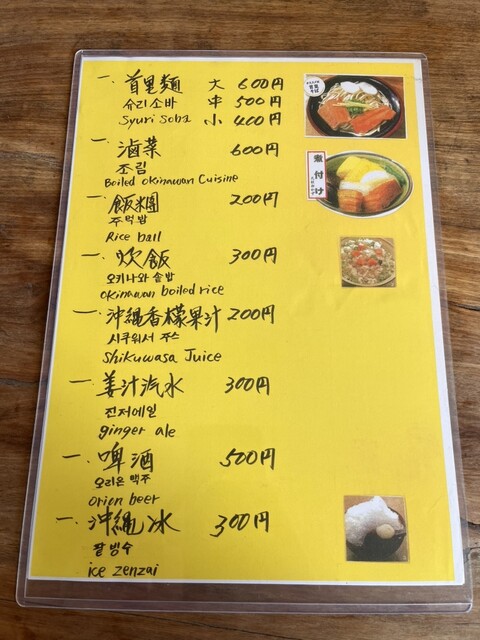 一. 首里麵 大 600円
슈리소바 中 500円
Syuri Soba 小 400円
一 滷菜 600円
조림
Boiled Okinawan Cuisine
一. 飯糰 200円
주먹밥
Rice ball
一. 炊飯 300円
오키나와 솥밥
Okinawan boiled rice
一. 沖縄香檬果汁 200円
시쿠워서 쥬스
Shikuwasa Juice
一. 姜汁汽水 300円
진저에일
ginger ale
一. 啤酒 500円
오리온 맥주
Orion beer
一. 沖縄冰 300円
팥빙수
ice zenzai
煮付け